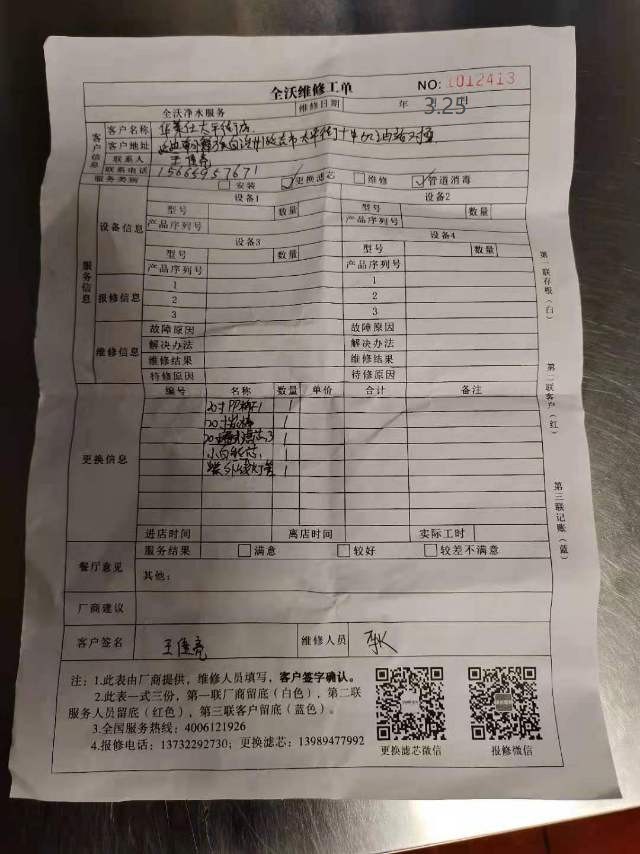 全沃维修工单
NO: 1012413
全沃净水服务 维修日期 年 3.25
客户信息
客户名称 华莱仕太平街店
客户地址
联系人 王佳亮
联系电话 15665957671
服务类别 安装 ✓更换滤芯 维修 ✓管道消毒
服务信息
设备信息
设备1 设备2
型号 数量 型号 数量
产品序列号 产品序列号
设备3 设备4
型号 数量 型号 数量
产品序列号 产品序列号
报修信息
1 1
2 2
3 3
维修信息
故障原因 故障原因
解决办法 解决办法
维修结果 维修结果
待修原因 待修原因
更换信息
编号 名称 数量 单价 合计 备注
20寸PP棉 1
20寸 1
20寸 1
1
紫外线灯管 1
进店时间 离店时间 实际工时
餐厅意见
服务结果 满意 较好 较差不满意
其他：
厂商建议
客户签名 王佳亮 维修人员
第一联存根（白）
第二联客户（红）
第三联记账（蓝）
注：1.此表由厂商提供，维修人员填写，客户签字确认。
2.此表一式三份，第一联厂商留底（白色），第二联
服务人员留底（红色），第三联客户留底（蓝色）。
3.全国服务热线：4006121926
4.报修电话：13732292730；更换滤芯：13989477992
更换滤芯微信 报修微信